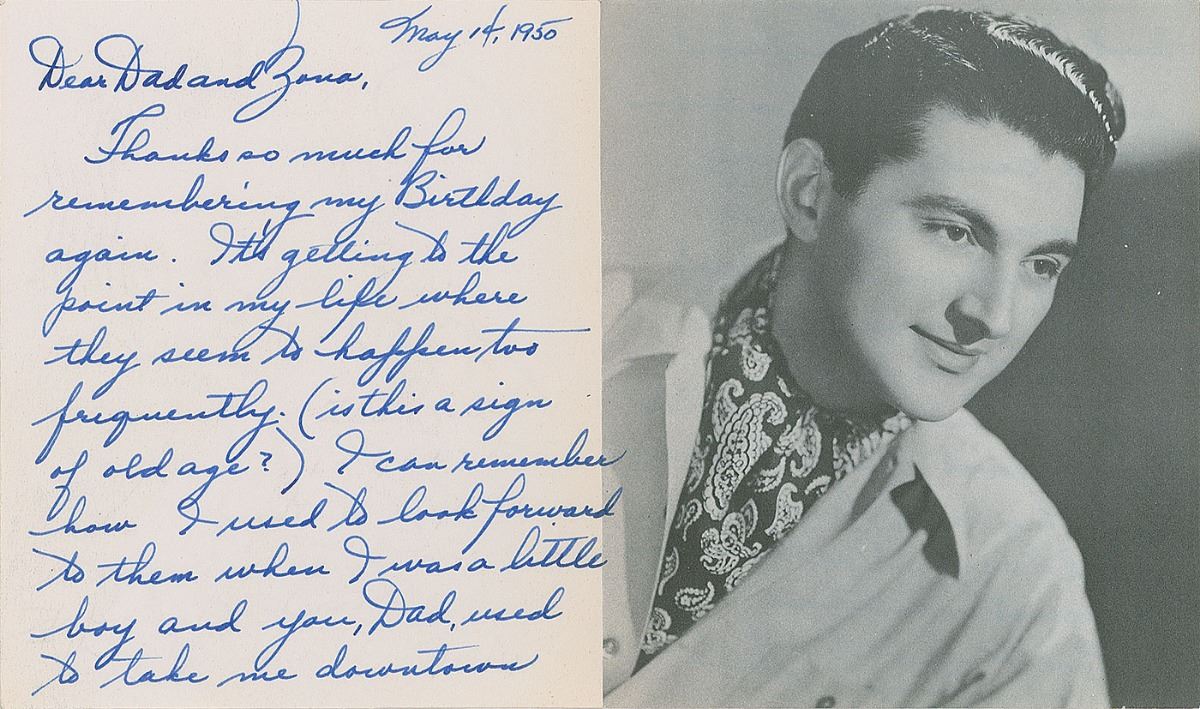 May 14, 1950
Dear Dad and Zona,
Thanks so much for
remembering my Birthday
again. It's getting to the
point in my life where
they seem to happen too
frequently. (is this a sign
of old age?) I can remember
how I used to look forward
to them when I was a little
boy and you, Dad, used
to take me downtown